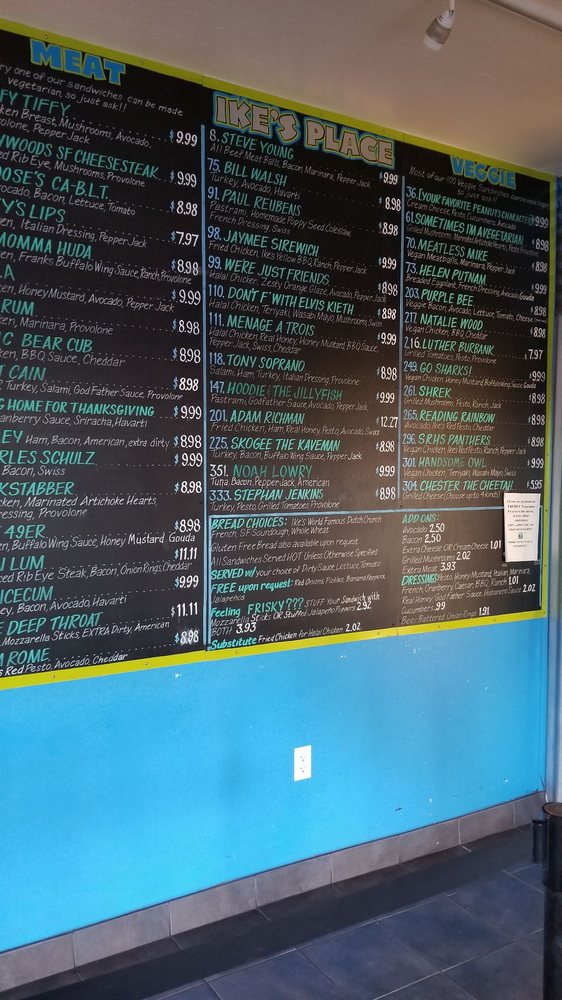 MEAT
ry one of our sandwiches can be made
vegetarian, so just ask!!
FY TIFFY
ken Breast, Mushrooms, Avocado,
volone, Pepper Jack $9.99
YWOODS SF CHEESESTEAK
ed Rib Eye, Mushrooms, Provolone $9.99
OOSE'S CA-B.L.T.
vocado, Bacon, Lettuce, Tomato $8.98
Y'S LIPS
en, Italian Dressing, Pepper Jack $7.97
MOMMA HUDA
en, Franks Buffalo Wing Sauce, Ranch, Provolone $8.98
LA
en, Honey Mustard, Avocado, Pepper Jack $9.99
RUM
en, Marinara, Provolone $8.98
C BEAR CUB
cken, BBQ Sauce, Cheddar $8.98
T CAIN
Turkey, Salami, God Father Sauce, Provolone $8.98
G HOME FOR THANKSGIVING
anberry Sauce, Sriracha, Havarti $9.99
EY Ham, Bacon, American, extra dirty $8.98
RLES SCHULZ
Bacon, Swiss $9.99
KSTABBER
cken, Marinated Artichoke Hearts,
essing, Provolone $8.98
49ER
en, Buffalo Wing Sauce, Honey Mustard Gouda $8.98
I LUM
ced Rib Eye Steak, Bacon, Onion Rings, Cheddar $11.11
ICECUM
ey, Bacon, Avocado, Havarti $9.99
E DEEP THROAT
Mozzarella Sticks, EXTRA Dirty, American $11.11
M ROME
s Red Pesto, Avocado, Cheddar $8.98
IKE'S PLACE
8. STEVE YOUNG
All Beef Meat Balls, Bacon, Marinara, Pepper Jack $9.99
75. BILL WALSH
Turkey, Avocado, Havarti $8.98
91. PAUL REUBENS
Pastrami, Homemade Poppy Seed Coleslaw,
French Dressing, Swiss $8.98
98. JAYMEE SIREWICH
Fried Chicken, Ike's Yellow BBQ, Ranch, Pepper Jack $9.99
99. WE'RE JUST FRIENDS
Halal Chicken, Zesty Orange Glaze, Avocado, Pepper Jack $8.98
110. DON'T F' WITH ELVIS KIETH
Halal Chicken, Teriyaki, Wasabi Mayo, Mushrooms, Swiss $8.98
111. MENAGE A TROIS
Halal Chicken, Real Honey, Honey Mustard, BBQ Sauce,
Pepper Jack, Swiss, Cheddar $9.99
118. TONY SOPRANO
Salami, Ham, Turkey, Italian Dressing, Provolone $8.98
147. HOODIE & THE JILLYFISH
Pastrami, God Father Sauce, Avocado, Pepper Jack $9.99
201. ADAM RICHMAN
Fried Chicken, Ham, Real Honey, Pesto, Avocado, Swiss $12.27
225. SKOGEE THE KAVEMAN
Turkey, Bacon, Buffalo Wing Sauce, Pepper Jack $8.98
351. NOAH LOWRY
Tuna, Bacon, Pepper Jack, American $9.99
333. STEPHAN JENKINS
Turkey, Pesto, Grilled Tomatoes, Provolone $8.98
BREAD CHOICES: Ike's World Famous Dutch Crunch
French, SF Sourdough, Whole Wheat
Gluten Free Bread also available upon request
All Sandwiches Served HOT Unless Otherwise Specified
SERVED w/ your choice of Dirty Sauce, Lettuce, Tomato
FREE upon request: Red Onions, Pickles, Banana Peppers,
Jalapeños
Feeling FRISKY??? STUFF Your Sandwich with
Mozzarella Sticks OR Stuffed Jalapeño Runners 2.92
BOTH 3.93
Substitute Fried Chicken for Halal Chicken 2.02
VEGGIE
Most of our 170 Veggie Sandwiches can be made Vegan
so just ask!!
36. [YOUR FAVORITE PEANUTS CHARACTER]
Cream Cheese, Pesto, Cucumbers, Avocado $9.99
61. SOMETIMES I'M A VEGETARIAN
Grilled Mushrooms, Marinated Artichoke Hearts, Pesto, Provolone $8.98
70. MEATLESS MIKE
Vegan Meatballs, Marinara, Pepper Jack $8.98
73. HELEN PUTNAM
Breaded Eggplant, French Dressing, Avocado, Gouda $9.99
203. PURPLE BEE
Veggie Bacon, Avocado, Lettuce, Tomato, Cheese $8.98
217. NATALIE WOOD
Vegan Chicken, BBQ, Cheddar $8.98
216. LUTHER BURBANK
Grilled Tomatoes, Pesto, Provolone $7.97
249. GO SHARKS!
Vegan Chicken, Honey Mustard, Buffalo Wing Sauce, Gouda $9.99
261. SHRER
Grilled Mushrooms, Pesto, Ranch, Jack $8.98
265. READING RAINBOW
Avocado, Ikes Red Pesto, Cheddar $8.98
296. S.R.H.S PANTHERS
Vegan Chicken, Ikes Red Pesto, Cheddar $8.98
301. HANDSOME OWL
Vegan Chicken, Teriyaki, Wasabi Mayo, Swiss $9.99
304. CHESTER THE CHEETAH
Grilled Cheese (Choose up to 4 kinds) $5.95
ADD ONS:
Avocado 2.50
Bacon 2.50
Extra Cheese OR Cream Cheese 1.01
Grilled Mushrooms 2.02
Extra Meat 3.93
DRESSINGS Pesto, Honey Mustard, Italian, Marinara,
French, Cranberry, Caesar, BBQ, Ranch 1.01
Real Honey, God Father Sauce, Habanero Sauce 2.02
Cucumbers .99
Beer Battered Onion Rings 1.91